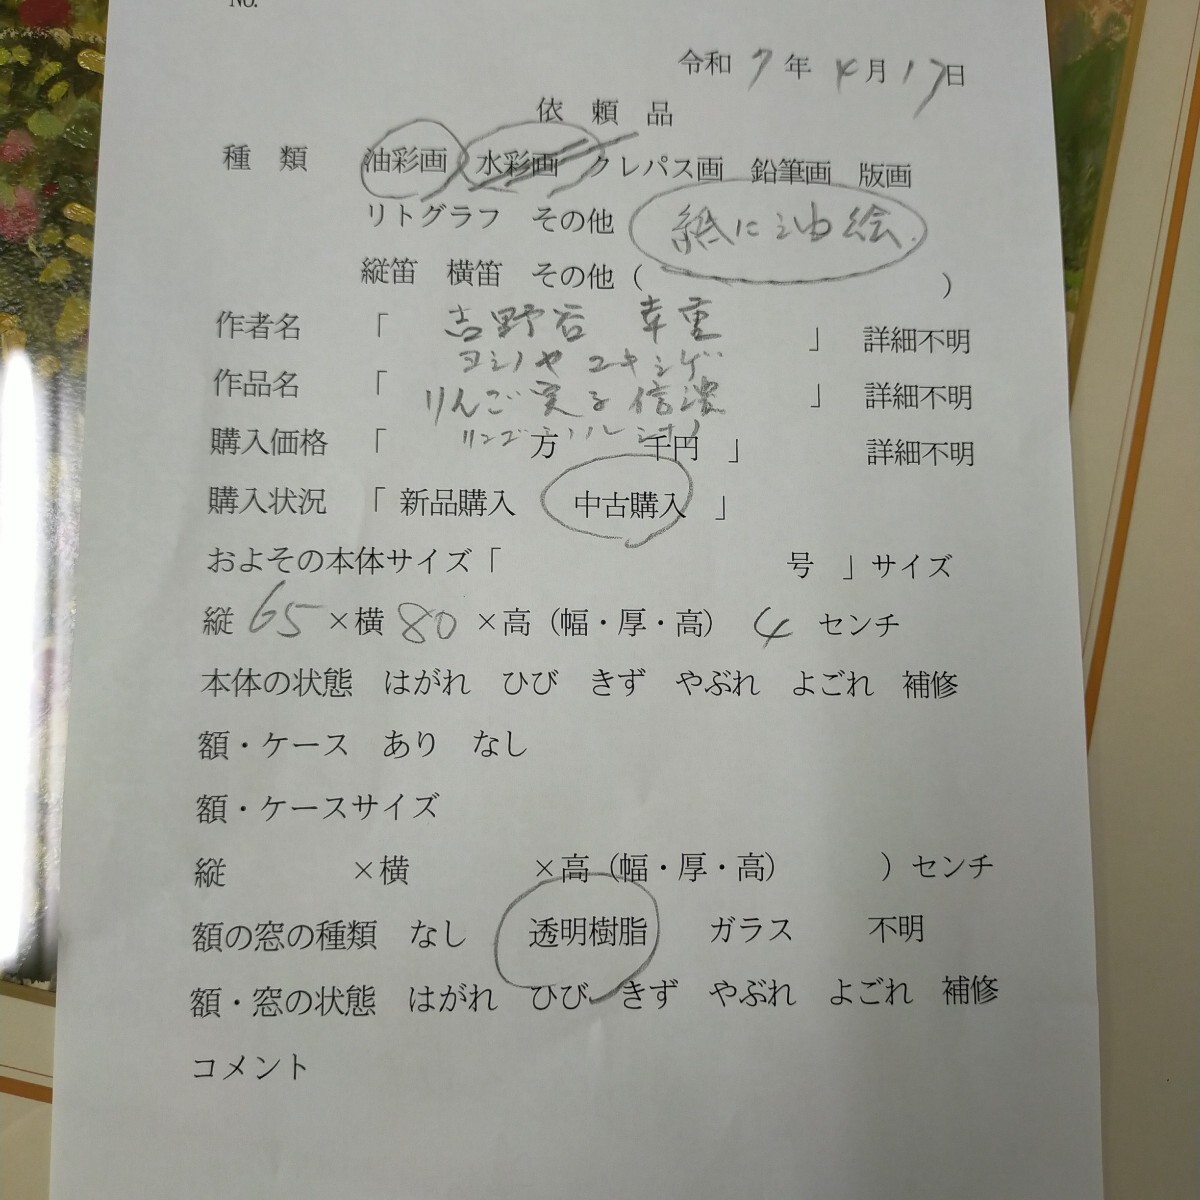 No.
令和 7 年 4 月 17 日
依 頼 品
種 類 油彩画 水彩画 クレパス画 鉛筆画 版画
リトグラフ その他 紙に油絵
縦笛 横笛 その他（ ）
作者名 「 吉野谷 幸重 」 詳細不明
ヨシノヤ ユキシゲ
作品名 「 りんご実る信濃 」 詳細不明
リンゴミノルシナノ
購入価格 「 万 千円 」 詳細不明
購入状況 「 新品購入 中古購入 」
およその本体サイズ「 号 」サイズ
縦 65 ×横 80 ×高（幅・厚・高） 4 センチ
本体の状態 はがれ ひび きず やぶれ よごれ 補修
額・ケース あり なし
額・ケースサイズ
縦 ×横 ×高（幅・厚・高） ）センチ
額の窓の種類 なし 透明樹脂 ガラス 不明
額・窓の状態 はがれ ひび きず やぶれ よごれ 補修
コメント